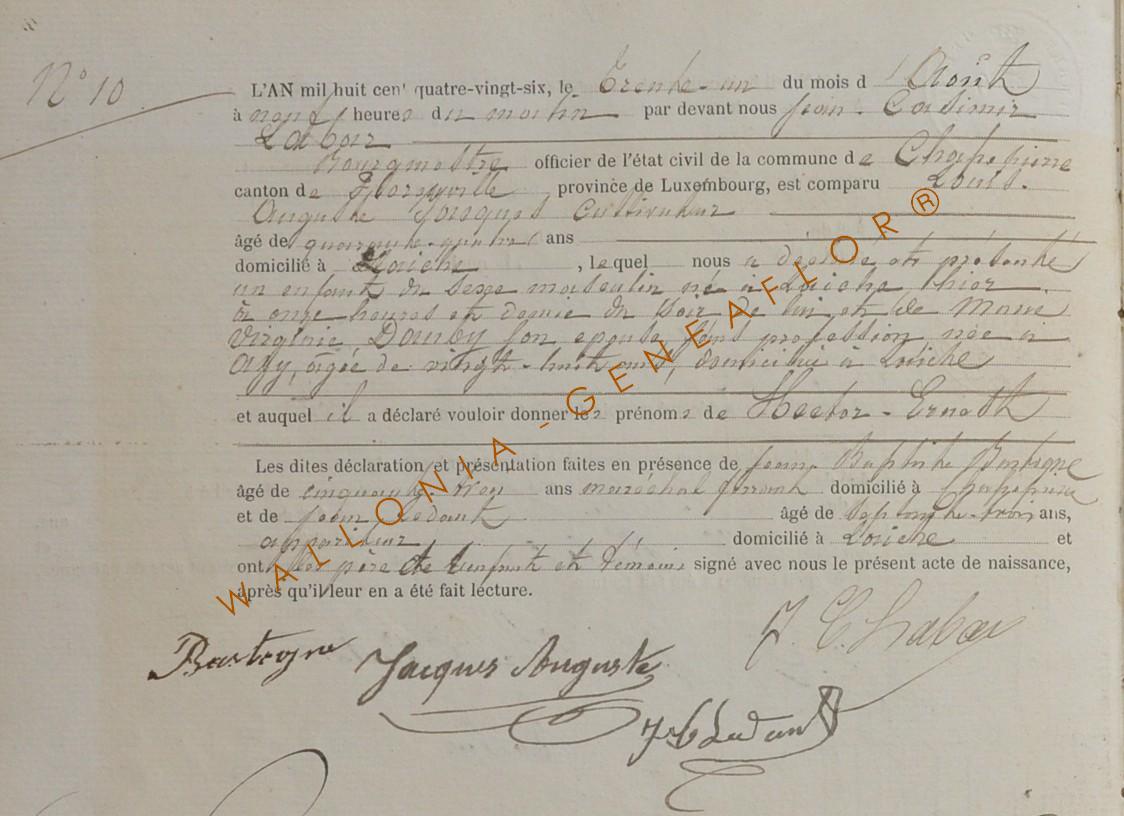 N° 10
L'AN mil huit cen' quatre-vingt-six, le Trente-un du mois d'Août
à neuf heures du matin par devant nous Jean-Casimir
Labar
Bourgmestre officier de l'état civil de la commune de Cherapierre
canton de province de Luxembourg, est comparu Louis-
Auguste Jacques Cultivateur
âgé de quarante-quatre ans
domicilié à Loiche, lequel nous a déclaré et présenté
un enfant du sexe masculin né à Loiche hier
à onze heures et demie du soir de lui et de Marie
Virginie Dauby son épouse sans profession née à
Assy, âgée de vingt-huit ans, domiciliée à Loiche
et auquel il a déclaré vouloir donner les prénoms de Hector-Ernest
Les dites déclaration et présentation faites en présence de Jean-Baptiste Bastogne
âgé de cinquante-trois ans maréchal ferrant domicilié à
et de Jean Ledant âgé de septante-trois ans,
appariteur domicilié à Loiche et
ont les père de l'enfant et témoins signé avec nous le présent acte de naissance,
après qu'il leur en a été fait lecture.
J. C. Labar
Bastogne Jacques Auguste
J b Ledant
WALLONIA - GENEAFLOR ®